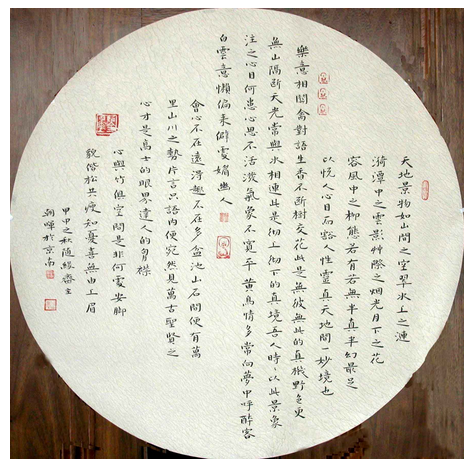 天地景物如山間之空翠水上之漣
漪潭中之雲影草際之烟光月下之花
容風中之柳態若有若無半真半幻最足
以悅人心目而豁人性靈真天地間一妙境也
樂意相關禽對語生香不斷樹交花此是無彼無此的真機野色更
無山隔斷天光常與水相連此是徹上徹下的真境吾人時〻以此景象
注之心目何患心思不活潑氣象不寬平黃鳥情多常向夢中呼醉客
白雲意懶偏來僻處媚幽人
會心不在遠得趣不在多盆池山石間便有萬
里山川之勢片言只語內便宛然見萬古聖賢之
心才是高士的眼界達人的胸襟
心與竹俱空問是非何處安脚
貌偕松共瘦知憂喜無由上眉
甲申之秋随緣齋主
朝暉於京南